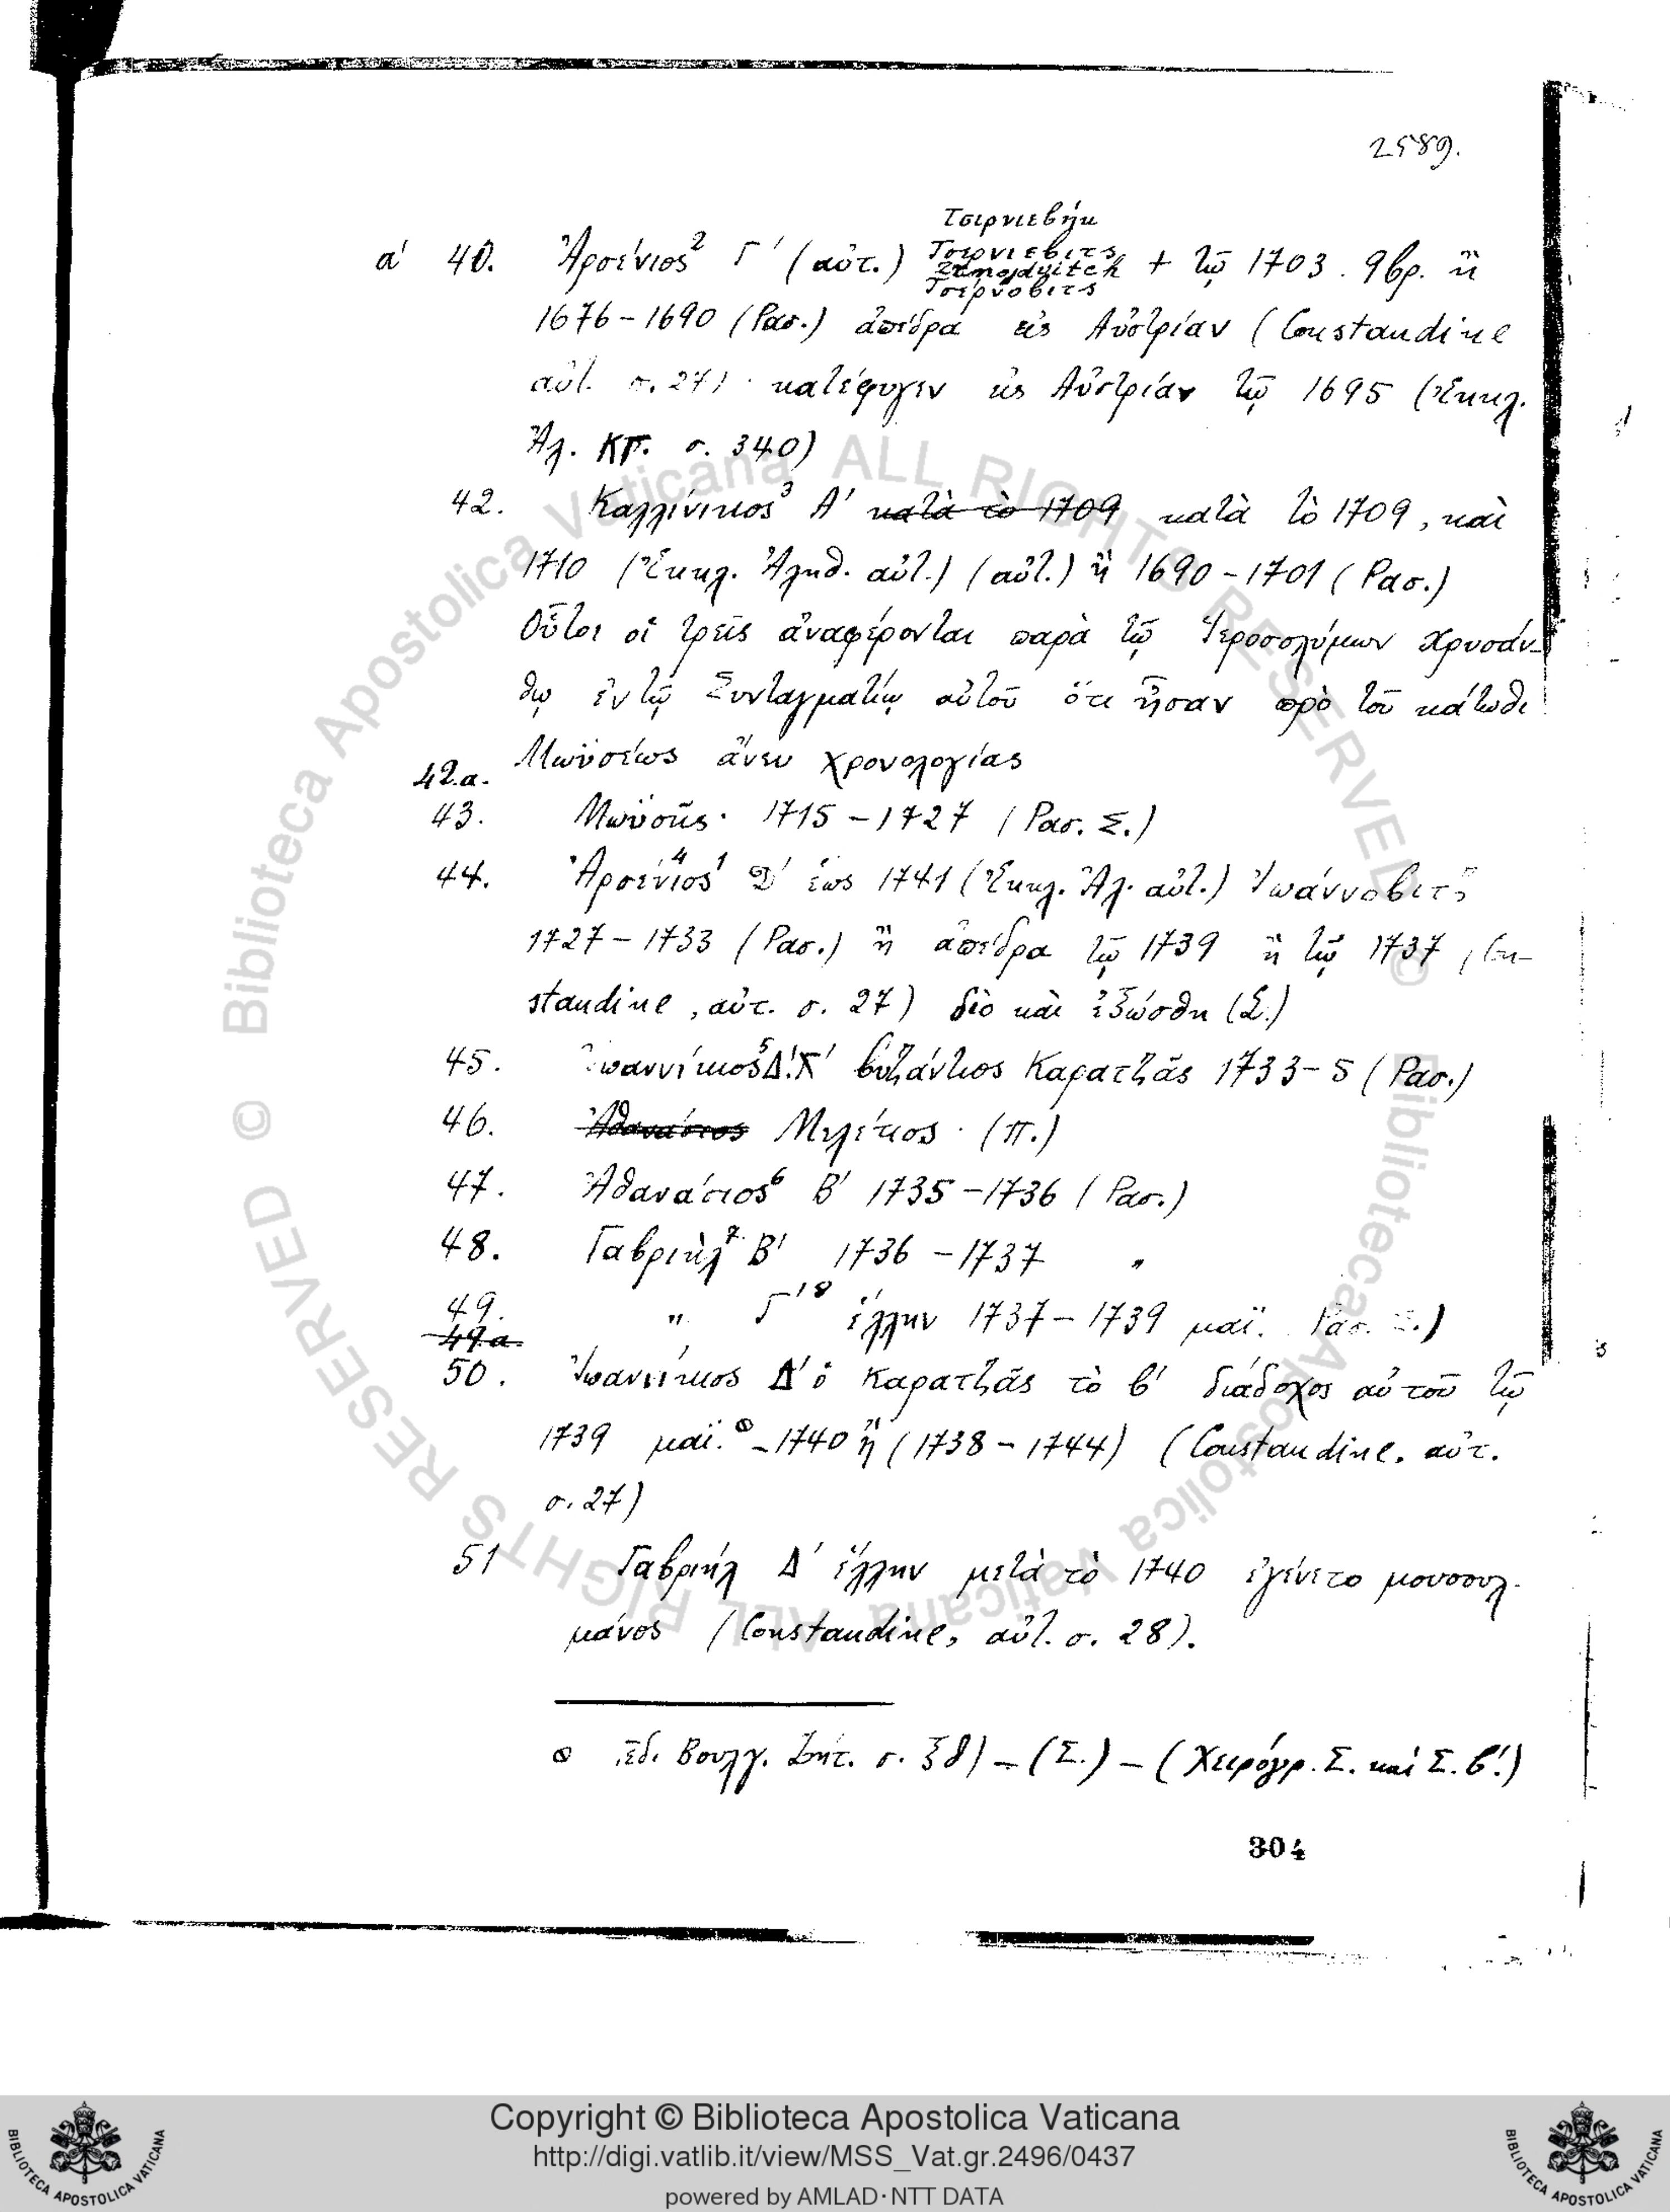 2589.
Τσιρνιεβήκ
α' 40. Ἀρσένιος² Γ' (αὐτ.) Τσιρνιεβιτς + τῷ 1703. 9βρ. ἢ
Τσέρνοβιτς
1676-1690 (Ρασ.) ἀπέδρα εἰς Αὐστρίαν (Constandine
αὐτ. σ. 27) · κατέφυγεν εἰς Αὐστρίαν τῷ 1695 (Ἐκκλ.
Ἀλ. ΚΓ. σ. 340)
42. Καλλίνικος³ Α' κατὰ τὸ 1709 κατὰ τὸ 1709, καὶ
1710 (Ἐκκλ. Ἀληθ. αὐτ.) (αὐτ.) ἢ 1690-1701 (Ρασ.)
Οὗτοι οἱ τρεῖς ἀναφέρονται παρὰ τῷ Ἱεροσολύμων Χρυσάν-
θῳ ἐν τῷ Συνταγματίῳ αὐτοῦ ὅτι ἦσαν πρὸ τοῦ κάτωθι
Μωϋσέως ἄνευ χρονολογίας
42.α.
43. Μωϋσῆς · 1715-1727 (Ρασ. Σ.)
44. Ἀρσένιος⁴ Δ' ἕως 1741 (Ἐκκλ. Ἀλ. αὐτ.) Ἰωάννοβιτς
1727-1733 (Ρασ.) ἢ ἀπέδρα τῷ 1739 ἢ τῷ 1737 (Con-
standine, αὐτ. σ. 27) διὸ καὶ ἐξώσθη (Σ.)
45. Ἰωαννίκιος⁵ Δ'.Γ' βυζάντιος Καρατζᾶς 1733-5 (Ρασ.)
46. Ἀθανάσιος Μελέτιος · (Π.)
47. Ἀθανάσιος⁶ Β' 1735-1736 (Ρασ.)
48. Γαβριὴλ⁷ Β' 1736-1737 "
49. " Γ'⁸ ἕλλην 1737-1739 μαΐ. Ρασ. Σ.)
49.α.
50. Ἰωαννίκιος Δ' ὁ Καρατζᾶς τὸ β' διάδοχος αὐτοῦ τῷ
1739 μαΐ. -1740 ἢ (1738-1744) (Constandine. αὐτ.
σ. 27)
51 Γαβριὴλ Δ' ἕλλην μετὰ τὸ 1740 ἐγένετο μουσουλ-
μάνος (Constandine, αὐτ. σ. 28).
Βουλγ. Ζητ. σ. ξθ) - (Σ.) - (Χειρόγρ. Σ. καὶ Σ. β'.)
304
© Biblioteca Apostolica Vaticana ALL RIGHTS RESERVED
© Biblioteca Apostolica Vaticana ALL RIGHTS RESERVED
Copyright © Biblioteca Apostolica Vaticana
http://digi.vatlib.it/view/MSS_Vat.gr.2496/0437
powered by AMLAD·NTT DATA
BIBLIOTECA APOSTOLICA VATICANA
BIBLIOTECA APOSTOLICA VATICANA